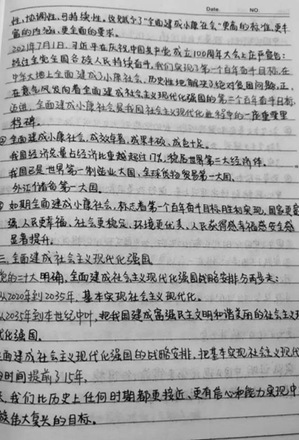 Date NO
性,协调性,可持续性,这赋予了"全面建成小康社会"更高的标准,更丰
富的内涵,更全面的要求。
2021年7月1日,习近平在庆祝中国共产党成立100周年大会上庄严宣告:
经过全党全国各族人民持续奋斗,我们实现了第一个百年奋斗目标,在
中华大地上全面建成了小康社会,历史性地解决了绝对贫困问题,正
在意气风发向着全面建成社会主义现代化强国的第二个百年奋斗目标
迈进。全面建成小康社会是我国社会主义现代化进程中的一座重要里
程碑。
全面建成小康社会,成效卓著,成果丰硕,成色十足。
我国经济总量占世界经济比重超过17%,稳居世界第二大经济体。
我国已是世界第一制造业大国,全球货物贸易第一大国。
外汇储备第一大国。
如期全面建成小康社会,标志着第一个百年奋斗目标胜利实现,国家更富
强,人民更幸福,社会更稳定,环境更优美,人民获得感幸福感安全感
显著提升。
三、全面建成社会主义现代化强国
党的二十大明确,全面建成社会主义现代化强国战略安排分两步走:
从2020年到2035年,基本实现社会主义现代化。
从2035年到本世纪中叶,把我国建成富强民主文明和谐美丽的社会主义现
代化强国。
全面建成社会主义现代化强国的战略安排,把基本实现社会主义现代
的时间提前了15年。
我们比历史上任何时期都更接近、更有信心和能力实现中
族伟大复兴的目标。